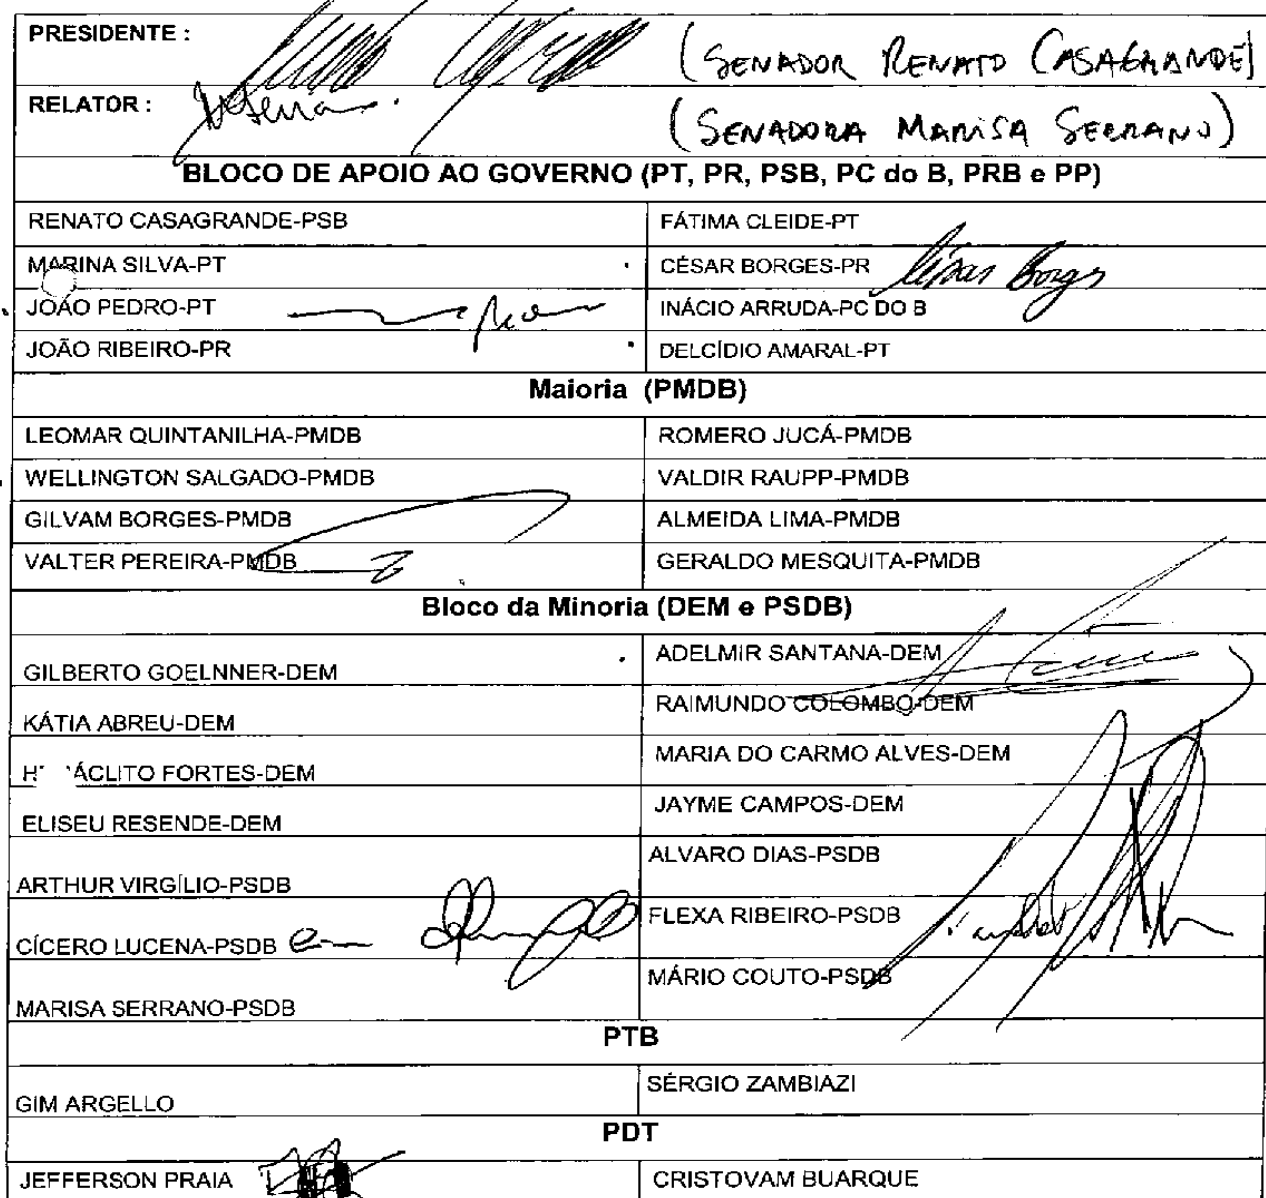 PRESIDENTE :
(SENADOR RENATO CASAGRANDE)
RELATOR :
(SENADORA MARISA SERRANO)
BLOCO DE APOIO AO GOVERNO (PT, PR, PSB, PC do B, PRB e PP)
RENATO CASAGRANDE-PSB FÁTIMA CLEIDE-PT
MARINA SILVA-PT CÉSAR BORGES-PR César Borges
JOÃO PEDRO-PT INÁCIO ARRUDA-PC DO B
JOÃO RIBEIRO-PR DELCÍDIO AMARAL-PT
Maioria (PMDB)
LEOMAR QUINTANILHA-PMDB ROMERO JUCÁ-PMDB
WELLINGTON SALGADO-PMDB VALDIR RAUPP-PMDB
GILVAM BORGES-PMDB ALMEIDA LIMA-PMDB
VALTER PEREIRA-PMDB GERALDO MESQUITA-PMDB
Bloco da Minoria (DEM e PSDB)
GILBERTO GOELNNER-DEM ADELMIR SANTANA-DEM
KÁTIA ABREU-DEM RAIMUNDO COLOMBO-DEM
H ÁCLITO FORTES-DEM MARIA DO CARMO ALVES-DEM
ELISEU RESENDE-DEM JAYME CAMPOS-DEM
ARTHUR VIRGÍLIO-PSDB ALVARO DIAS-PSDB
CÍCERO LUCENA-PSDB FLEXA RIBEIRO-PSDB
MARISA SERRANO-PSDB MÁRIO COUTO-PSDB
PTB
GIM ARGELLO SÉRGIO ZAMBIAZI
PDT
JEFFERSON PRAIA CRISTOVAM BUARQUE